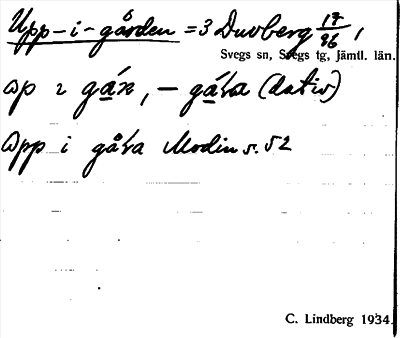 Upp-i-gården = 3 Duvberg 17/96,
Svegs sn, Svegs tg, Jämtl. län.
op i gán, – gára (dativ)
Opp i gåra Modin s. 52
C. Lindberg 1934.